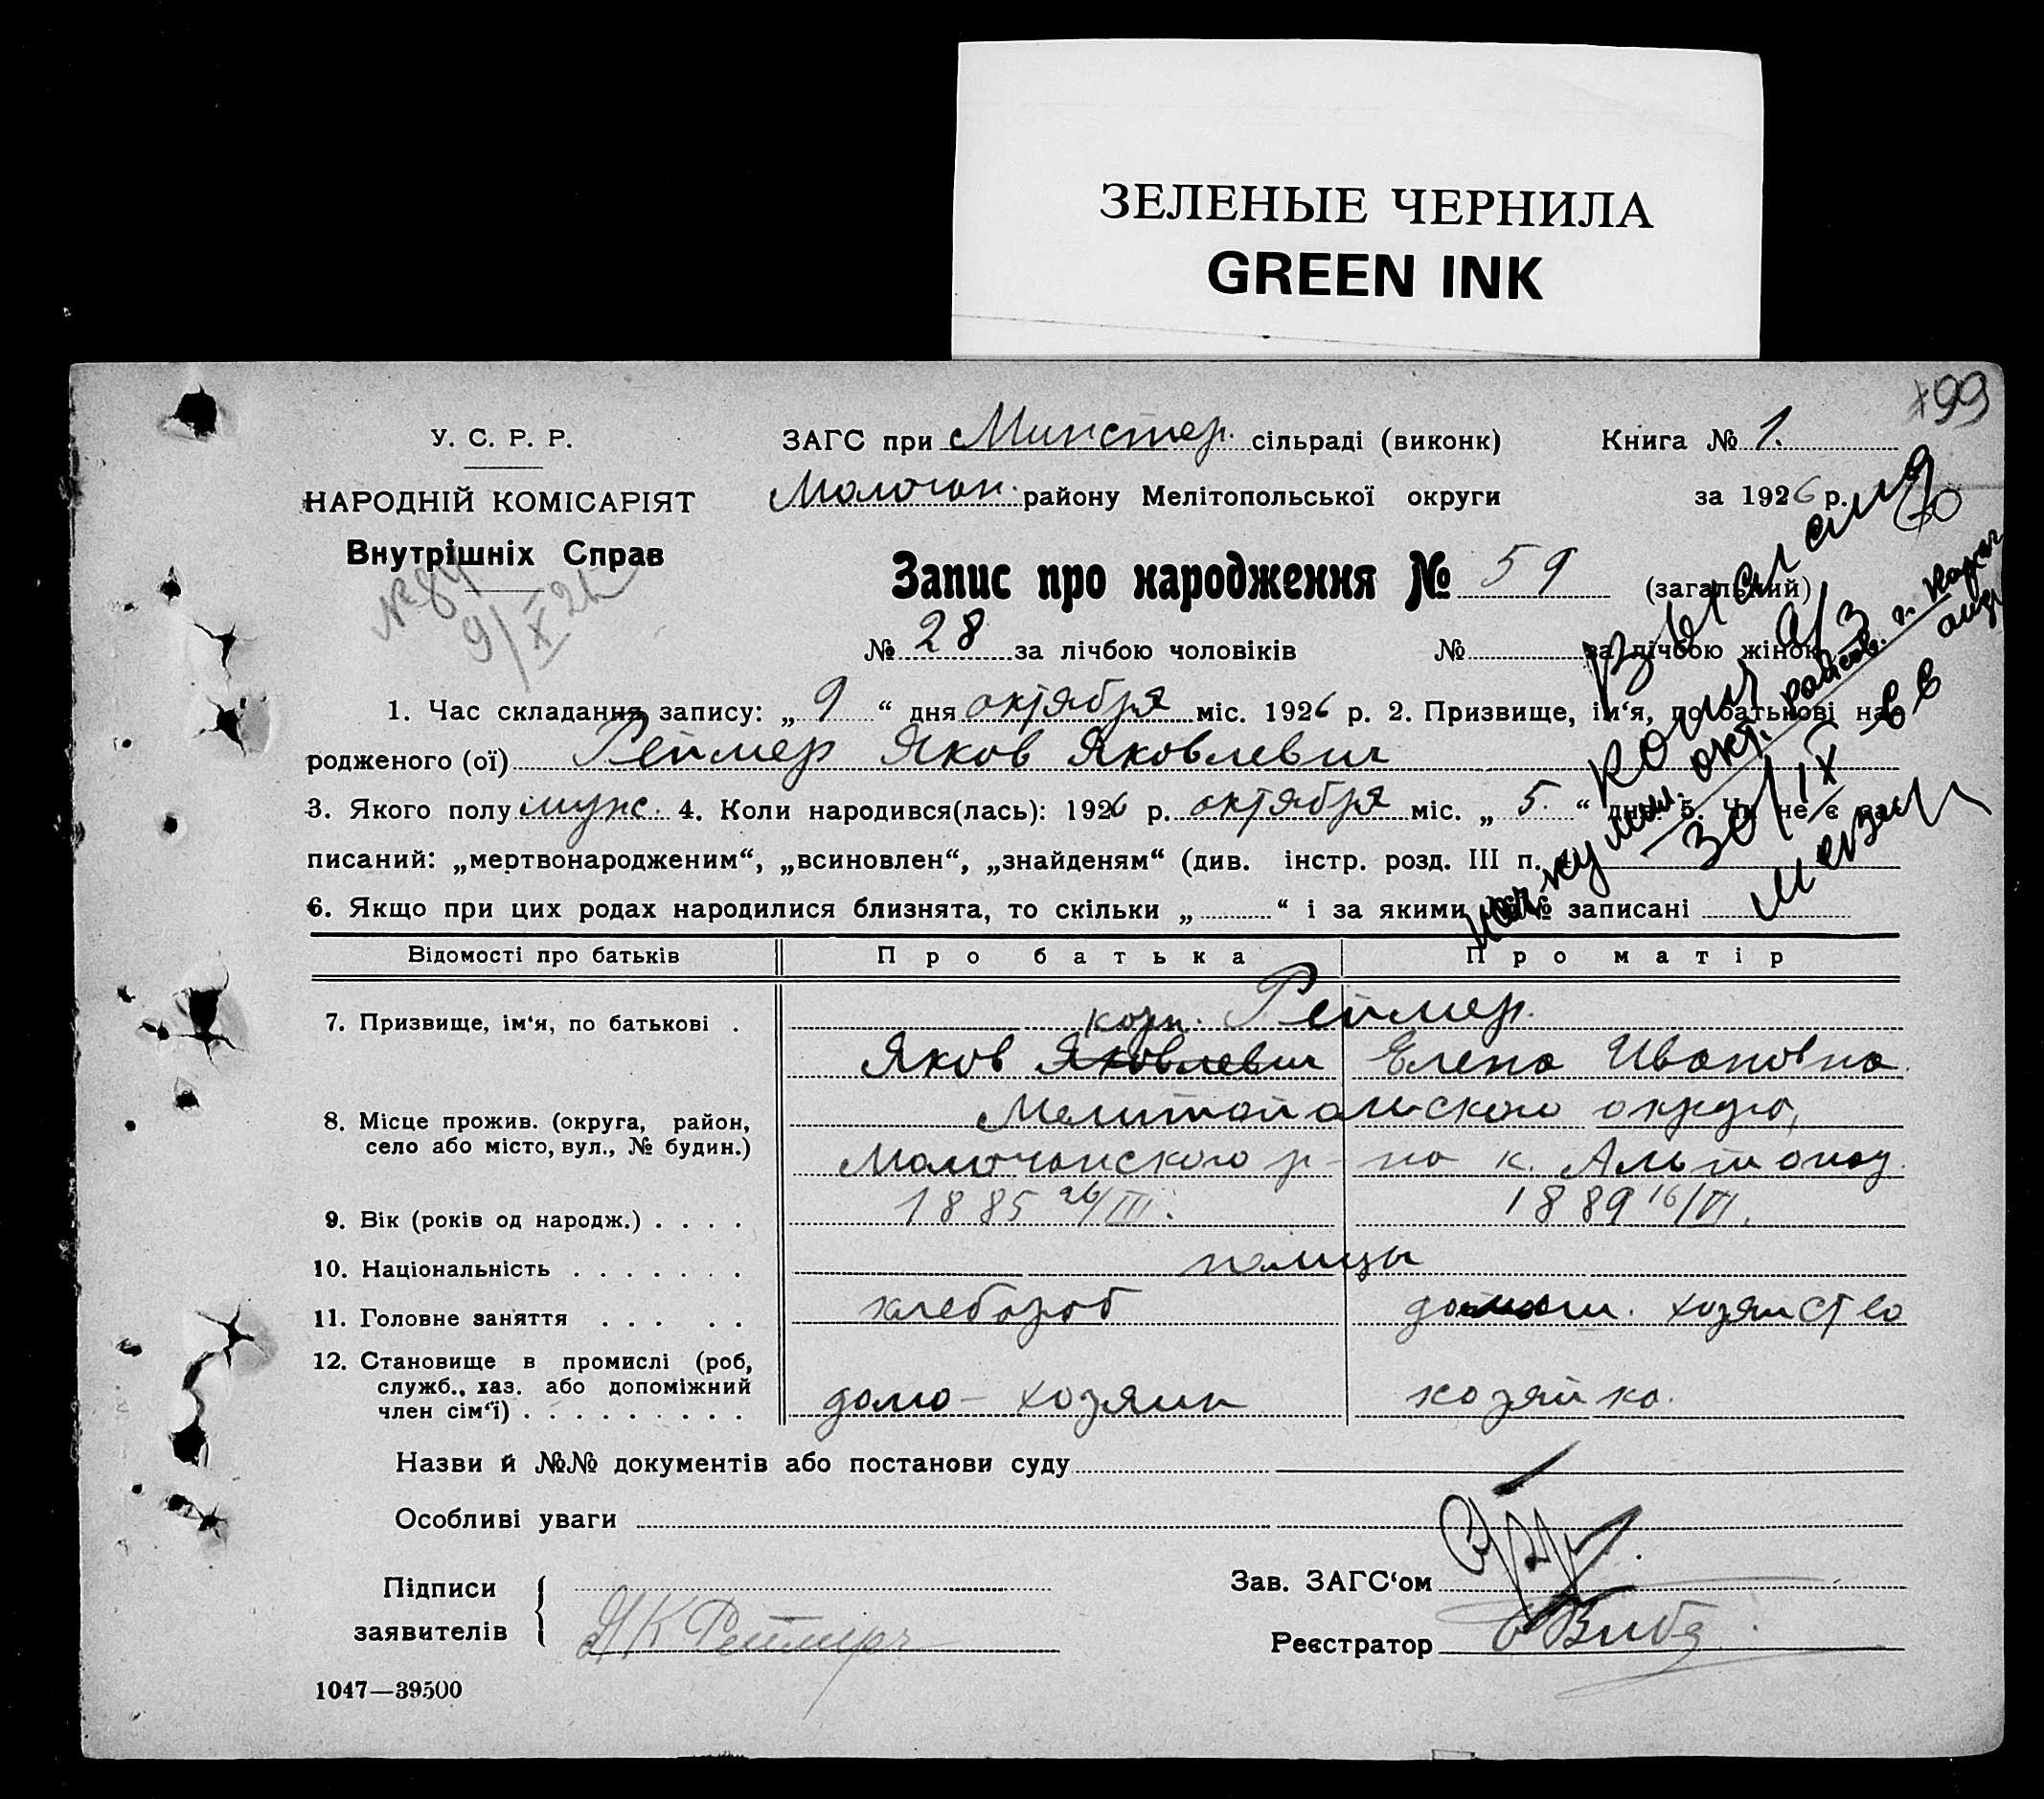 ЗЕЛЕНЫЕ ЧЕРНИЛА
GREEN INK
199
У. С. Р. Р.
НАРОДНІЙ КОМІСАРІЯТ
Внутрішніх Справ
№ 84
9/X 26
ЗАГС при Минстер. сільраді (виконк)
Книга № 1.
Молочан. району Мелітопольської округи
за 1926 р.
Запис про народження № 59 (загальний)
№ 28 за лічбою чоловіків № за лічбою жінок
1. Час складання запису: „ 9 “ дня октября міс. 1926 р. 2. Призвище, ім‘я, по батькові на-
родженого (ої) Реймер Яков Яковлевич
3. Якого полу муж. 4. Коли народився(лась): 1926 р. октября міс. „ 5. “ дня. 5. Чи не є за-
писаний: „мертвонародженим“, „всиновлен“, „знайденям“ (див. інстр. розд. III п.
6. Якщо при цих родах народилися близнята, то скільки „ “ і за якими №№ записані
Выслана
копия
30/IX
Відомості про батьків
Про батька
Про матір
7. Призвище, ім‘я, по батькові .
корн. Реймер.
Яков Яковлевич
Елена Ивановна
8. Місце прожив. (округа, район,
село або місто, вул., № будин.)
Мелитопольского округа,
Молочанского р-на к. Альтонау.
9. Вік (років од народж.) . . . .
1885 26/III.
1889 16/VI.
10. Національність . . . . . . .
немцы
11. Головне заняття . . . . .
хлебороб
домаш. хозяйство
12. Становище в промислі (роб,
служб., хаз. або допоміжний
член сім‘ї) . . . . . . . . .
домо-хозяин
хозяйка.
Назви й №№ документів або постанови суду
Особливі уваги
Підписи
заявителів
Я К Реймер
Зав. ЗАГС‘ом
Реєстратор
1047—39500